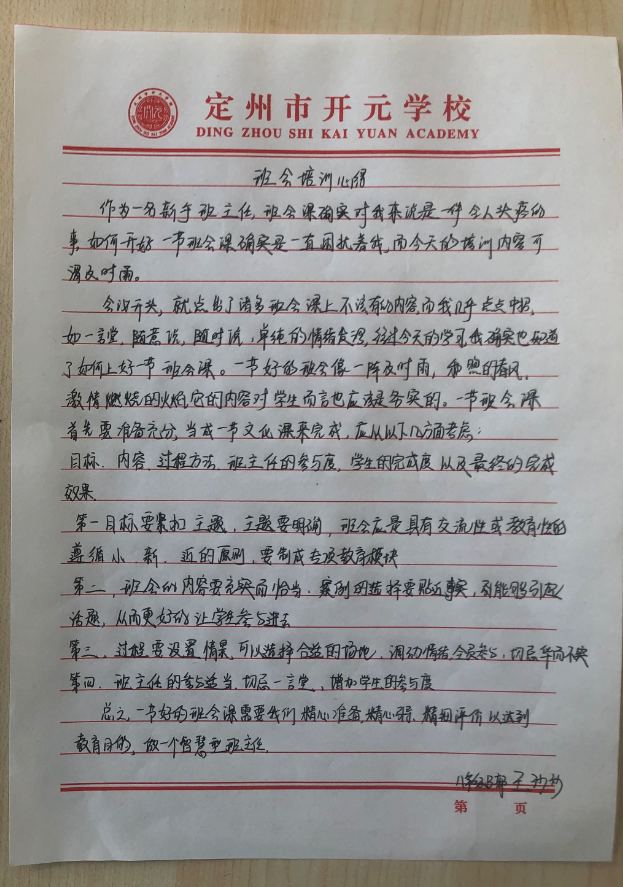 定州市开元学校
DING ZHOU SHI KAI YUAN ACADEMY
班会培训心得
作为一名新手班主任,班会课确实对我来说是一件令人头疼的
事,如何开好一节班会课确实是一直困扰着我,而今天的培训内容可
谓及时雨。
会议开头,就点出了诸多班会课上不该有的内容,而我几乎点点中招,
如一言堂,随意说,随时说,单纯的情绪发泄,经过今天的学习我确实也知道
了如何上好一节班会课。一节好的班会像一阵及时雨,和煦的春风,
激情燃烧的火焰,它的内容对学生而言也应该是务实的。一节班会课
首先要准备充分,当成一节文化课来完成,应从以下几方面考虑:
目标、内容、过程方法、班主任的参与度,学生的完成度以及最终的完成
效果。
第一目标要紧扣主题,主题要明确,班会应是具有交流性或教育性的
遵循小、新、近的原则,要制成专项教育模块
第二、班会的内容要充实而恰当、案例的选择要贴近事实,要能够引起
话题,从而更好的让学生参与进去
第三、过程要设置情景,可以选择合适的场地,调动情绪,全员参与,切忌华而不实
第四、班主任的参与适当,切忌一言堂、增加学生的参与度
总之,一节好的班会课需要我们精心准备,精心、精细评价以达到
教育目的,做一个智慧型班主任。
第 页